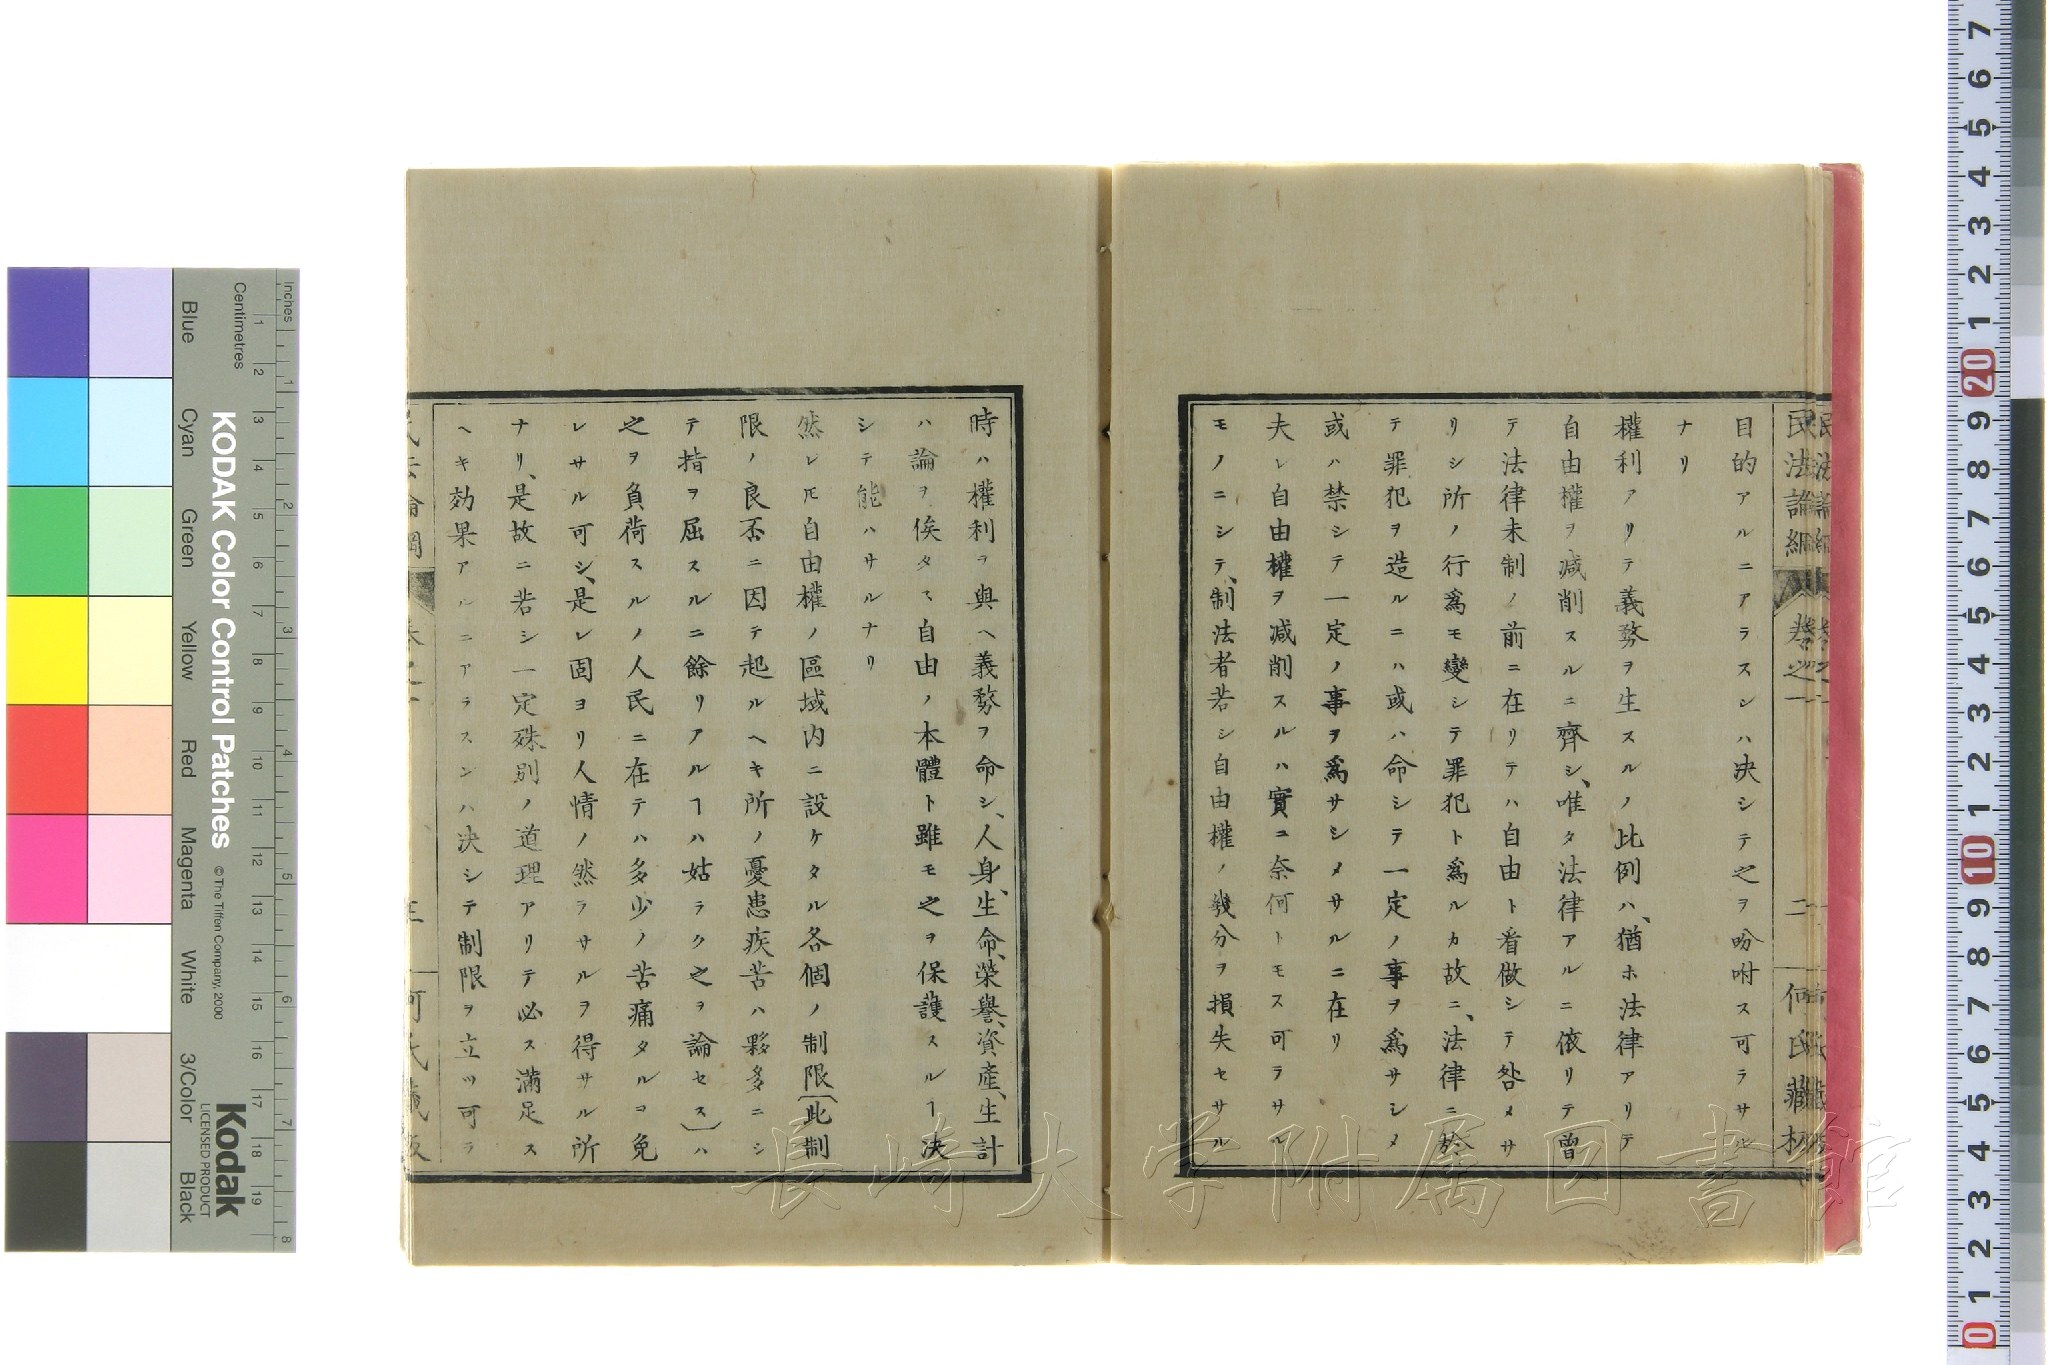 民法論綱
卷之一
二
何氏藏板
目的アルニアラスンハ決シテ之ヲ吩咐ス可ラサル
ナリ
權利アリテ義務ヲ生スルノ比例ハ、猶ホ法律アリテ
自由權ヲ減削スルニ齊シ、唯タ法律アルニ依リテ曽
テ法律未制ノ前ニ在リテハ自由ト看做シテ咎メサ
リシ所ノ行爲モ變シテ罪犯ト爲ルカ故ニ、法律ニ於
テ罪犯ヲ造ルニハ或ハ命シテ一定ノ事ヲ爲サシメ
或ハ禁シテ一定ノ事ヲ爲サシメサルニ在リ
夫レ自由權ヲ減削スルハ實ニ奈何トモス可ラサル
モノニシテ、制法者若シ自由權ノ幾分ヲ損失セサル
時ハ權利ヲ與ヘ義務ヲ命シ、人身、生命、榮譽、資産、生計
ハ論ヲ俟タス自由ノ本體ト雖モ之ヲ保護スルヿ决
シテ能ハサルナリ
然レ𪜈自由權ノ區域内ニ設ケタル各個ノ制限(此制
限ノ良否ニ因テ起ルヘキ所ノ憂患疾苦ハ夥多ニシ
テ指ヲ屈スルニ餘リアルヿハ姑ラク之ヲ論セス)ハ
之ヲ負荷スルノ人民ニ在テハ多少ノ苦痛タルヿ免
レサル可シ、是レ固ヨリ人情ノ然ラサルヲ得サル所
ナリ、是故ニ若シ一定殊別ノ道理アリテ必ス滿足ス
ヘキ効果アルニアラスンハ决シテ制限ヲ立ツ可ラ
長崎大学附属図書館
KODAK Color Control Patches
© The Tiffen Company, 2000
Kodak
LICENSED PRODUCT
Inches
Centimetres
Blue
Cyan
Green
Yellow
Red
Magenta
White
3/Color
Black
1 2 3 4 5 6 7 8 9 10 11 12 13 14 15 16 17 18 19
1 2 3 4 5 6 7 8
7 6 5 4 3 2 1 20 9 8 7 6 5 4 3 2 1 10 9 8 7 6 5 4 3 2 1 0